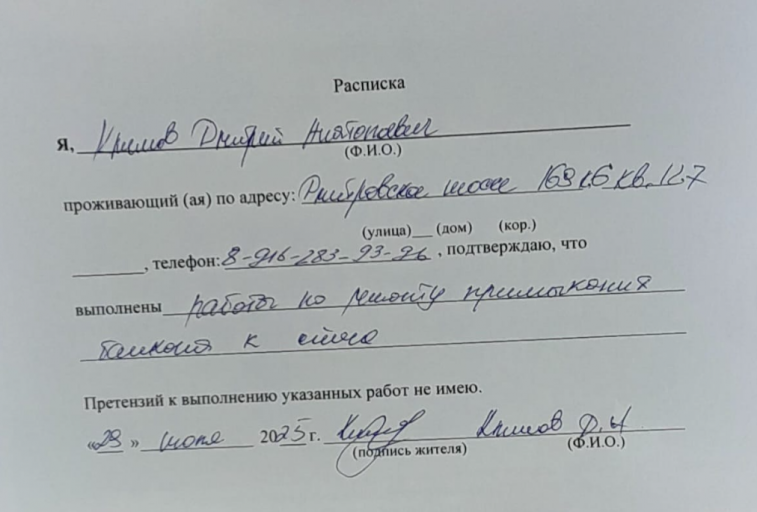 Расписка
Я, Климов Дмитрий Анатольевич
(Ф.И.О.)
проживающий (ая) по адресу: Дмитровское шоссе 169 к6 кв. 127
(улица)__ (дом) (кор.)
________, телефон: 8-916-283-93-26, подтверждаю, что
выполнены работы по ремонту примыкания
балкона к стене
Претензий к выполнению указанных работ не имею.
«29» июля 2025 г. Климов Д.А
(подпись жителя) (Ф.И.О.)